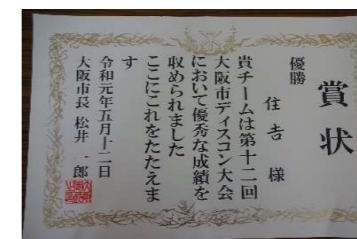 賞状
優勝
住吉 様
貴チームは第十二回
大阪市ディスコン大会
において優秀な成績を
収められました
ここにこれをたたえま
す
令和元年五月十二日
大阪市長 松井 一郎